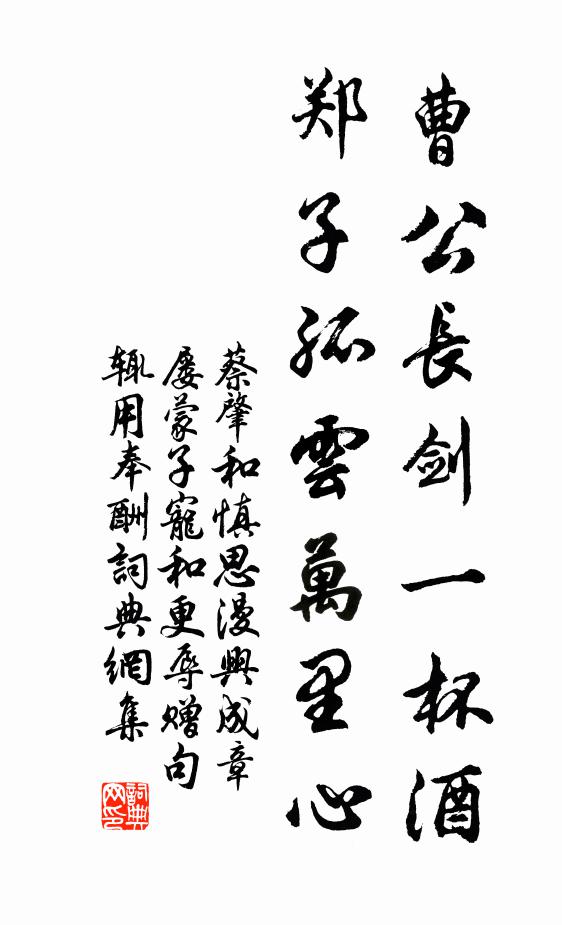 曹公長剑一杯酒
郑子孤雲萬里心
蔡肇和慎思漫興成章
屡蒙子寵和更辱赠句
辄用奉酬詞典網集
詞典网印